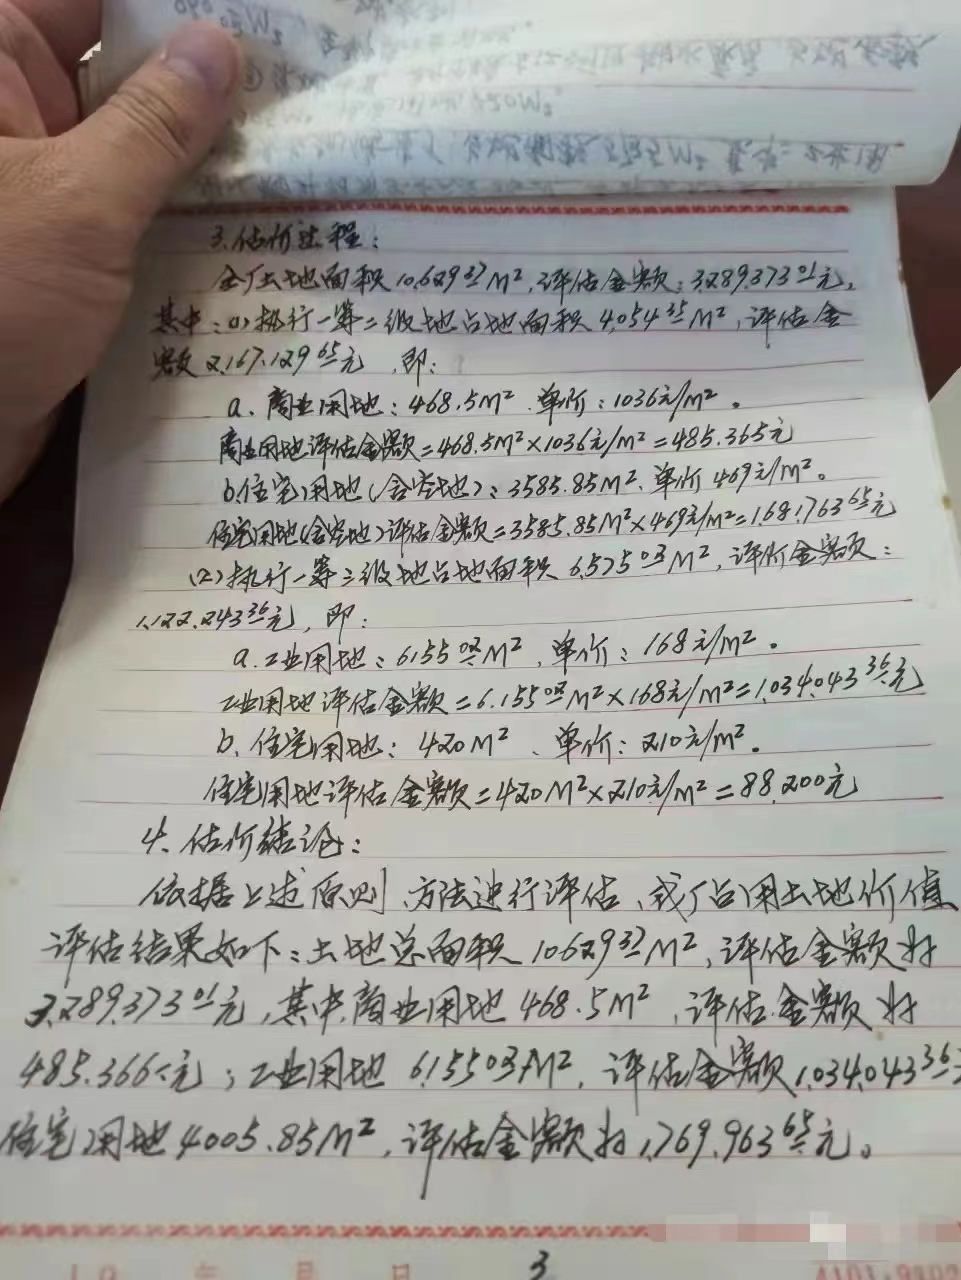 3.估价过程:
全厂土地面积10,629.37M²,评估金额:3,289,373.01元,
其中:(1)执行一等二级地占地面积4,054.35M²,评估金
额2,167,129.65元,即:
a、商业用地:468.5M²、单价:1036元/M²。
商业用地评估金额=468.5M²×1036元/M²=485.365元
b.住宅用地(含空地):3585.85M²、单价469元/M²。
住宅用地(含空地)评估金额=3585.85M²×469元/M²=1,681,763.65元
(2)执行一等三级地占地面积6,575.02M²,评价金额:
1,122,243.36元,即:
a.工业用地:6155.02M²、单价:168元/M²。
工业用地评估金额=6,155.02M²×168元/M²=1,034,043.36元
b、住宅用地:420M²、单价:210元/M²。
住宅用地评估金额=420M²×210元/M²=88,200元
4、估价结论:
依据上述原则、方法进行评估,我厂占用土地价值
评估结果如下:土地总面积10629.37M²,评估金额为
3,289,373.01元,其中,商业用地468.5M²,评估金额为
485.366元;工业用地6,155.02M²,评估金额1,034,043.36元
住宅用地4005.85M²,评估金额为1,769,963.65元。
19 年 月 日 3